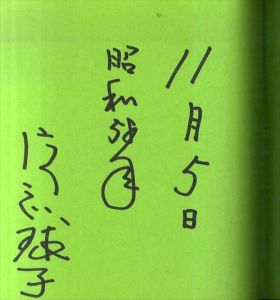 11月5日
昭和58年
球子